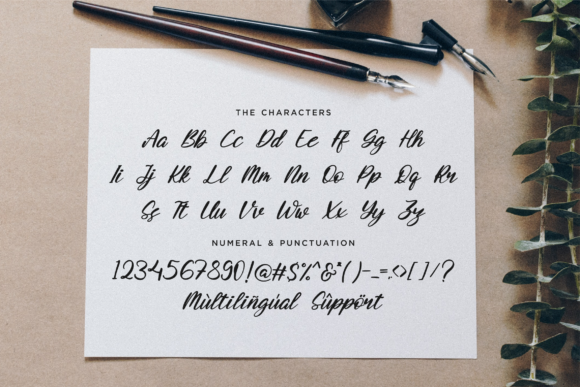 THE CHARACTERS
Aa Bb Cc Dd Ee Ff Gg Hh
Ii Jj Kk Ll Mm Nn Oo Pp Qq Rr
Ss Tt Uu Vv Ww Xx Yy Zz
NUMERAL & PUNCTUATION
1234567890!@#$%^&*()-_=;<>[]/?
Mùltilin̈gúal Sûppört